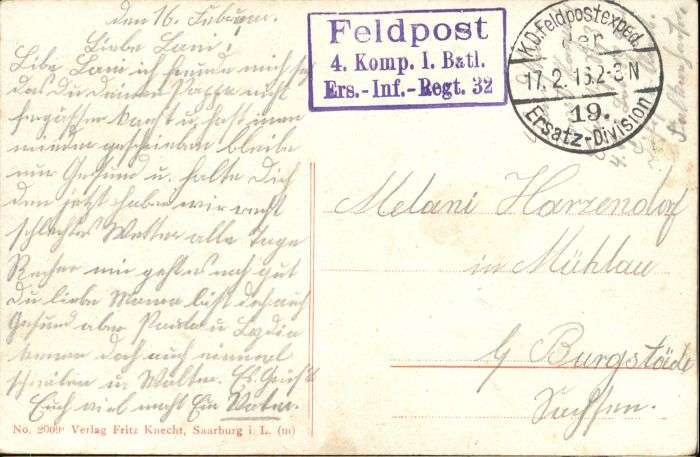 den 16. Februar.
Liebe Lani!
Libe Lani ich freude mich
das du deinen Pappa nicht
hast u. hast mir
wieder geschrieben bleibe
nur Gesund u. halte Dich
den jetzt haben wir recht
schlechtes Wetter alle Tage
Rechen mir geht es noch gut
Du liebe Mama bist doch auch
Gesund aber Paula u. Lydia
könen doch auch einmal
schreiben u. Walter. Es Grüst
Euch viel mahl Eur Vater.
No. 2009 Verlag Fritz Knecht, Saarburg i. L. (m)
Feldpost
4. Komp. I. Batl.
Ers.-Inf.-Regt. 32
K.D. Feldpostexped.
der
17.2.16.2-3N
19.
Ersatz-Division
Melani Harzendorf
in Mühlau
b/ Burgstäde
Sachsen.